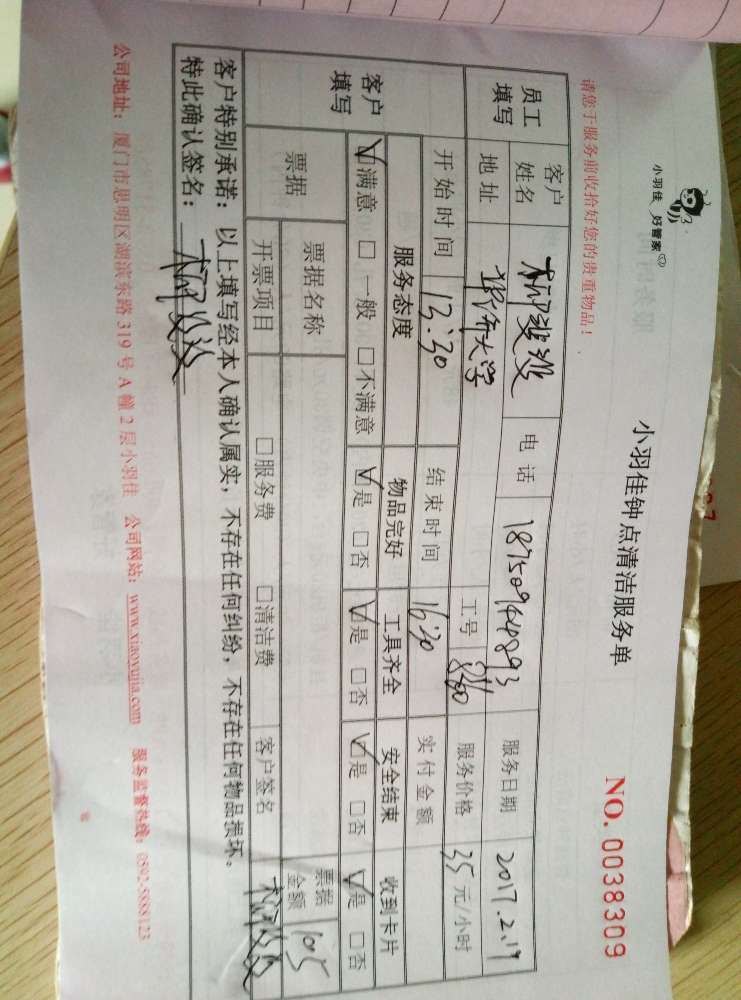 小羽佳 好管家
小羽佳钟点清洁服务单
NO. 0038309
请您于服务前收拾好您的贵重物品！
员工填写
客户姓名 电话 服务日期 2017.2.19
地址 工号 服务价格 35 元/小时
开始时间 13:30 结束时间 16:30 实付金额
客户填写
服务态度 物品完好 工具齐全 安全结束 收到卡片
☑满意 □一般 □不满意 ☑是 □否 ☑是 □否 ☑是 □否 ☑是 □否
票据 票据名称 票据金额 105
开票项目 □服务费 □清洁费 客户签名
客户特别承诺：以上填写经本人确认属实，不存在任何纠纷，不存在任何物品损坏。
特此确认签名：
公司地址：厦门市思明区湖滨东路 319 号 A 幢 2 层小羽佳 公司网站：www.xiaoyujia.com 服务监督热线：0592-5888123